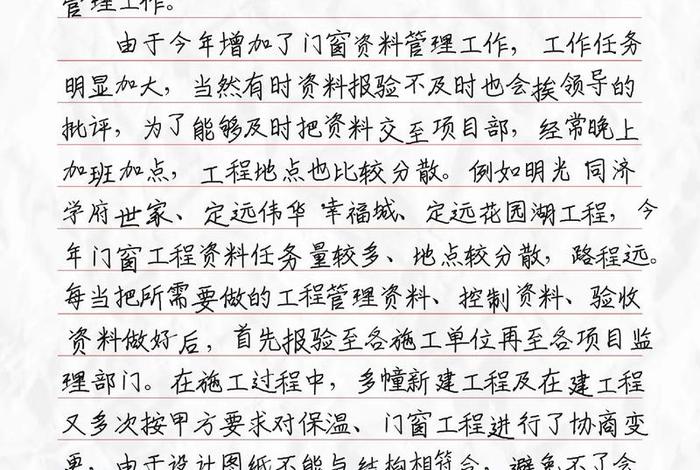 管理工作。
由于今年增加了门窗资料管理工作，工作任务
明显加大，当然有时资料报验不及时也会挨领导的
批评，为了能够及时把资料交至项目部，经常晚上
加班加点，工程地点也比较分散。例如明光 同济
学府世家、定远伟华 幸福城、定远花园湖工程，今
年门窗工程资料任务量较多、地点较分散，路程远。
每当把所需要做的工程管理资料、控制资料、验收
资料做好后，首先报验至各施工单位再至各项目监
理部门。在施工过程中，多幢新建工程及在建工程
又多次按甲方要求对保温、门窗工程进行了协商变
更，由于设计图纸不能与结构相符合，避免不了会